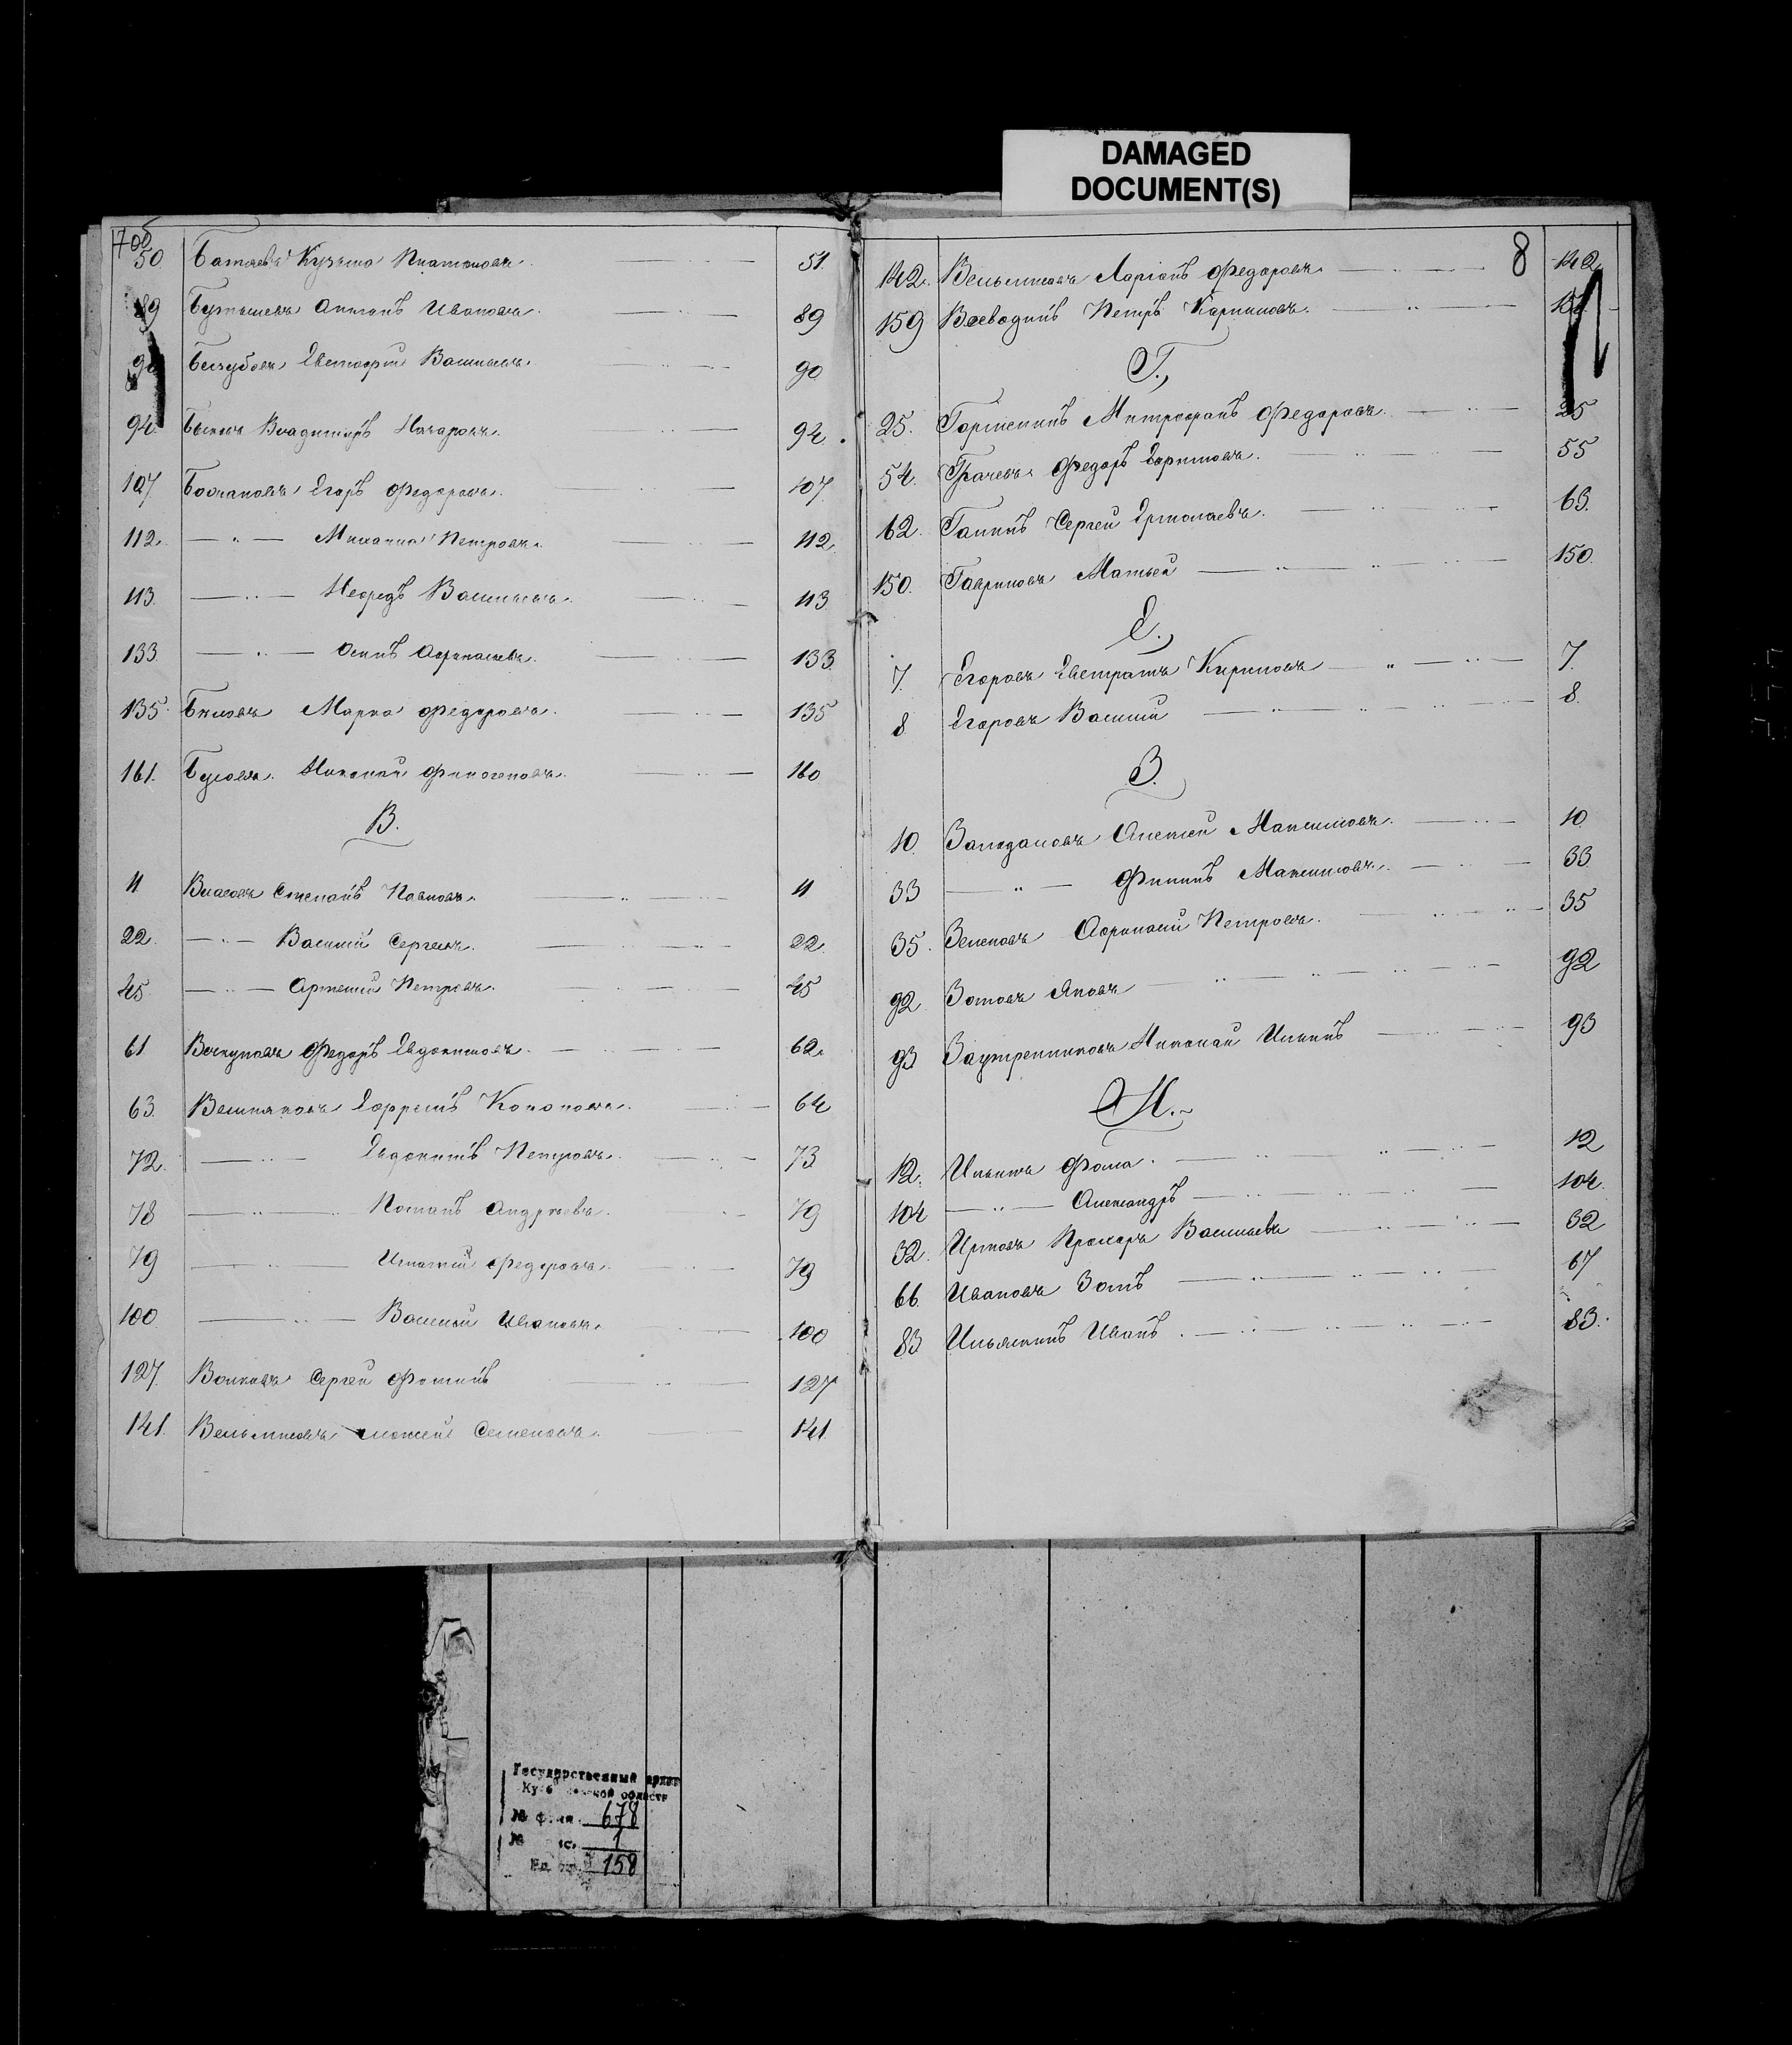 DAMAGED
DOCUMENT(S)
7об
50. Батаевъ Кузьма Платоновъ. 51.
89 Бутылевъ Антонъ Ивановъ. 89
90 Беззубовъ Евстафій Васильевъ. 90
94. Быковъ Владиміръ Назаровъ. 94.
107. Богдановъ Егоръ Федоровъ. 107.
112. — " — Михаила Петровъ. 112.
113. — " — Нефедъ Васильевъ. 113
133. — " — Осипъ Афанасьевъ. 133
135. Бѣловъ Марко Федоровъ. 135
161. Бусовъ Николай Финогеновъ. 160
В.
11. Власовъ Степанъ Павловъ. 11
22. — " — Василій Сергеевъ. 22.
45 — " — Артемій Петровъ. 45
61 Федоръ Евдокимовъ. 62.
63. Вешняковъ Ефремъ Кононовъ. 64
72. — " — Евдокимъ Петровъ. 73
78 — " — Потапъ Андреевъ. 79
79 — " — Игнатій Федоровъ. 79
100. — " — Василій Ивановъ. 100
127. Волковъ Сергей Фотинъ 127
141. Вельмисовъ Семеновъ. 141
8
142. Вельмисовъ Ларіонъ Федоровъ. 142
159 Воеводинъ Петръ Карповъ. 158
Г.
25. Митрофанъ Федоровъ. 25
54. Грачевъ Федоръ Ефимовъ. 55
62. Галинъ Сергей Ермолаевъ. 63.
150. Гавриловъ Матвей 150.
Е.
7. Егоровъ Евстратъ Кириловъ 7.
8 Егоровъ Василій 8.
З.
10. Алексей Максимовъ. 10
33 — " — Филипъ Максимовъ. 33
35. Зеленовъ Афанасій Петровъ. 35
92 Зотовъ Яковъ 92
93 Заутренниковъ Николай Ильинъ 93
И.
12. Ильинъ Фома. 12
104 — " — Александръ 104.
32. Прохоръ Васильевъ 32
66. Ивановъ Зотъ 67
83 Ильяскинъ Иванъ. 83.
Государственный архив
Куйбышевской области
№ фонд. 678
№ 1
Ед. хр. 158